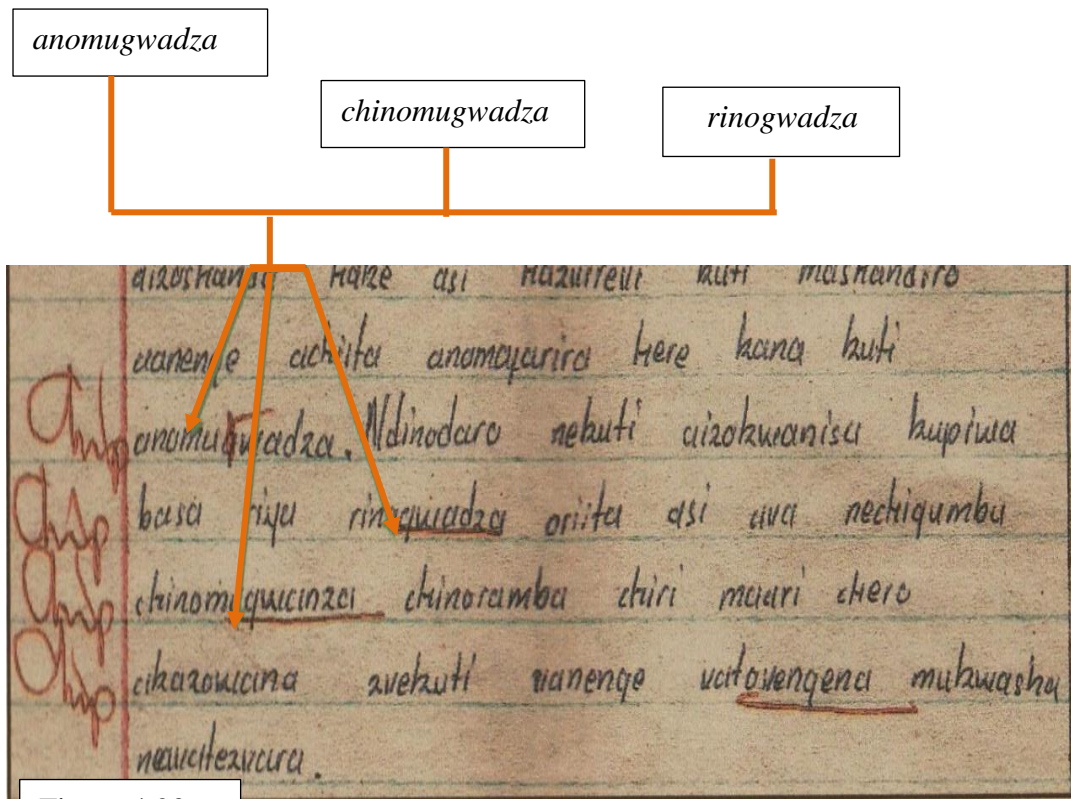 anomugwadza
chinomugwadza
rinogwadza
asi kuti mashandiro
vanenge achiita anomayarira here kana kuti
anomugwadza. Ndinodaro nekuti aizokwanisa kupiwa
basa riya rinogwadza oriita asi ava nechigumbu
chinoramba chiri maari chero
akazowana zvekuti vanenge vatovengena mukwasha
navatezvara.